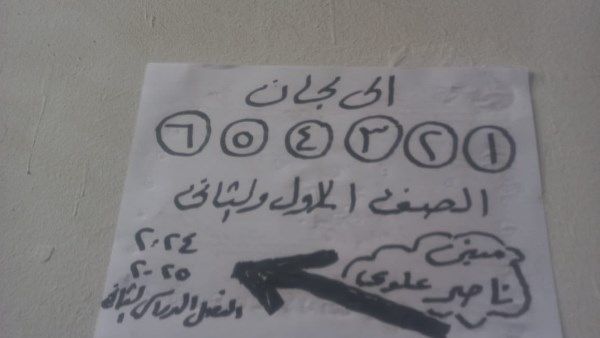 الى لجان
١ ٢ ٣ ٤ ٥ ٦
الصف الاول والثاني
مبنى
ناصر علوي
٢٠٢٤
٢٠٢٥
الفصل الدراسي الثاني